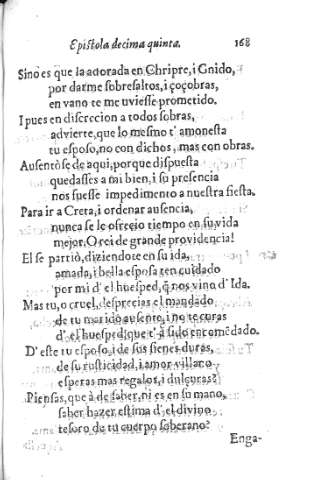 Epistola decima quinta. 168
Sino es que la adorada en Chripre, i Gnido,
por darme sobresaltos, i çoçobras,
en vano te me uviesse prometido.
I pues en discrecion a todos sobras,
advierte, que lo mesmo t' amonesta
tu esposo, no con dichos, mas con obras.
Ausentòse de aqui, porque dispuesta
quedasses a mi bien, i su presencia
nos fuesse impedimento a nuestra fiesta.
Para ir a Creta, i ordenar ausencia,
nunca se le ofrecio tiempo en su vida
mejor, O rei de grande providencia!
El se partiò, diziendote en su ida,
amada, i bella esposa ten cuidado
por mi d' el huesped, q̃ nos vino d' Ida.
Mas tu, o cruel, desprecias el mandado
de tu marido ausente, i no te curas
d' el huesped, que t' à sido encomẽdado.
D' este tu esposo, i de sus sienes duras,
de su rusticidad, i amor villano
esperas mas regalos, i dulçuras?
Piensas, que à de saber, ni es en su mano,
saber hazer estima d' el divino
tesoro de tu cuerpo soberano?
Enga-